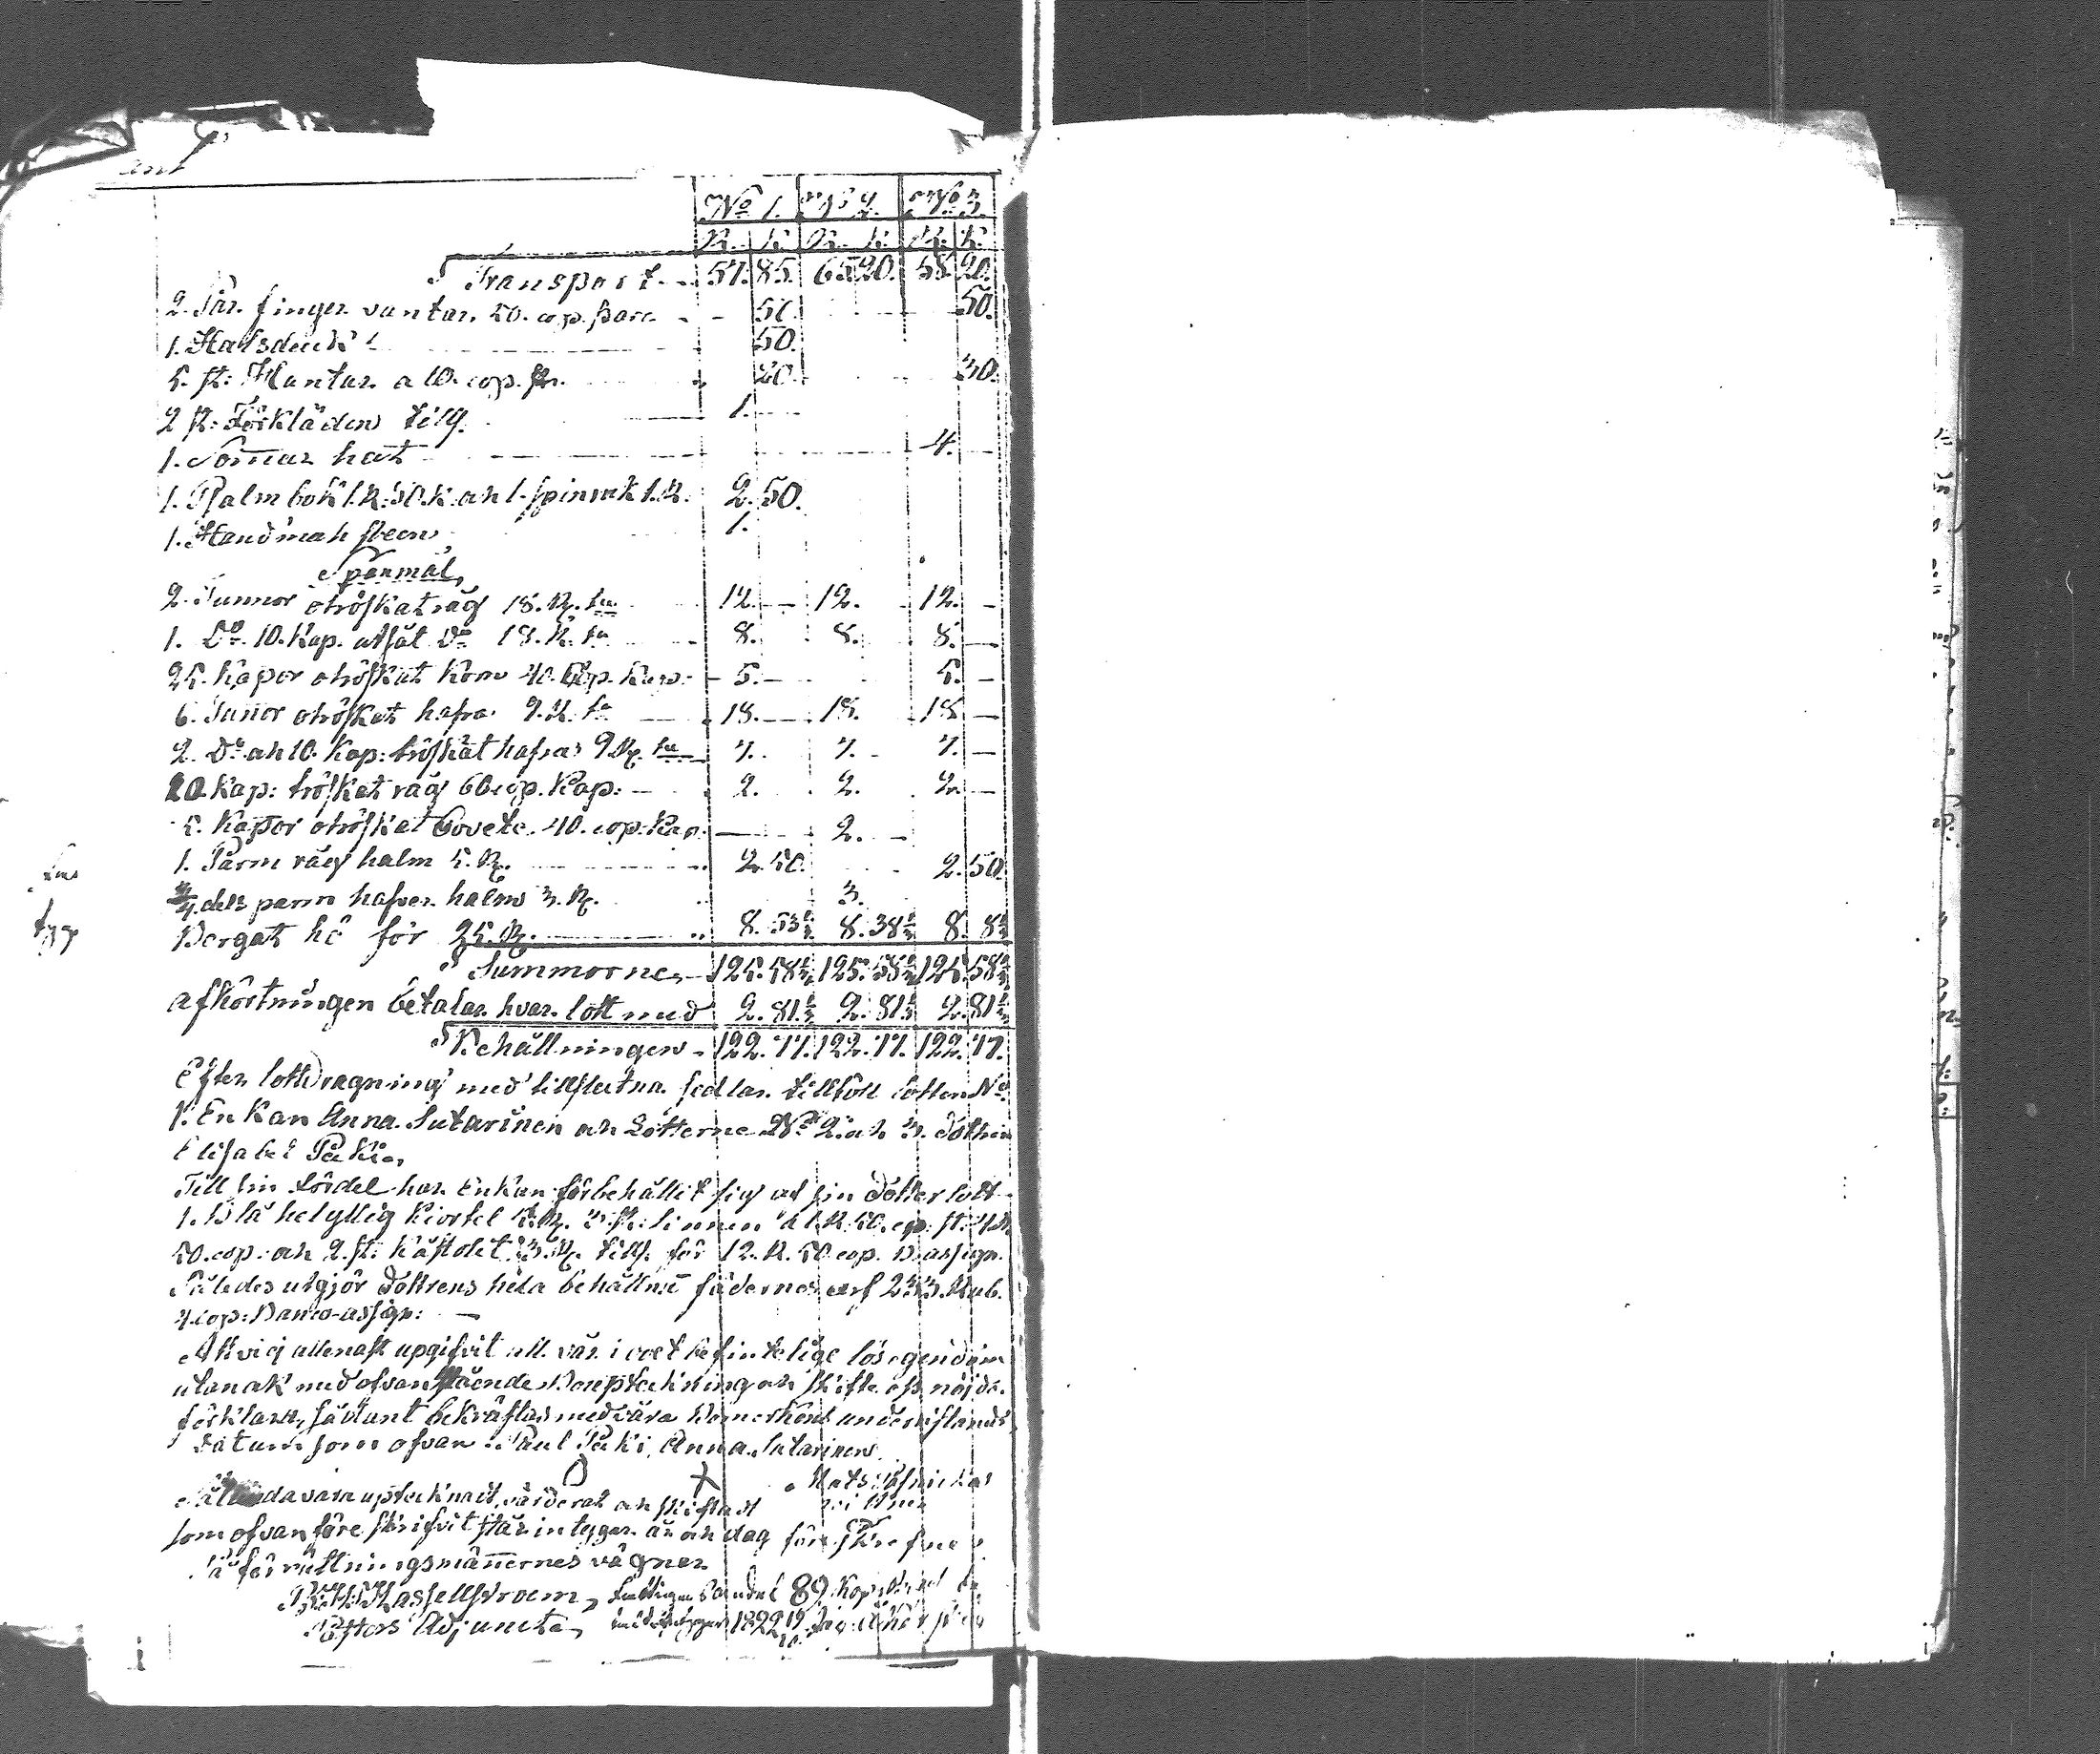 No 1. No 2. No 3.
R. K. R. K. R. K.
Transport 57. 85. 65 20. 58. 20.
2. Par. finger vantar. 50. cop. paret 50. 50.
1. Halsduk 50.
5. st: Hantar. a 10. cop. st. 20. 30.
2 st: Förkläden till 1.
1. Somar hat 4.
1. Psalm bok 1. R. 50. K. och 1. spinrok 1. R. 2. 50.
1. Handmah steen 1.
Spanmål,
2. Tunnor otröskat råg 18. R. tn 12. 12. 12.
1. Do 10. Kap. utsät Do 18. R. tn 8. 8. 8.
25. Kapor otröskat Korn 40. Cop. Kap. 5. 5.
6. Tunor otröskat hafra 9. R. tn 18. 18. 18
2. Do och 10. Kap: tröskat hafra 9 R. tn 7. 7. 7.
10. Kap: tröskat råg 60 cop. Kap. 2. 2. 2.
5. Kapor otröskat bovete 40. cop. Kap. 2.
1. Parm råg halm 5. R. 2. 50. 2. 50.
3/4 dels parm hafver halm 3. R. 3.
Bergat hö för 25. R. 8. 53½ 8. 38½ 8. 8½
Summorne 125. 58½ 125. 58½ 125. 58½
afkörtningen betalar hvar lott med 2. 81½ 2. 81½ 2. 81½
Behållningen 122. 77. 122. 77. 122. 77.
Efter lottdragning med tillslutna sedlar tillföll lotten No
1. Enkan Anna Sutarinen och Lotterne No 2. och 3. dottren
Elisabet Päki.
Till sin fördel har Enkan förbehållit sig af sin dotter lott
1. Blå helyllig Kiortel 5. R. 3. st: linnen a 1. R. 50. cop. st: 4 R.
50. cop. och 2. st: 3. R. till för 12. R. 50 cop. B. assign.
Således utgjör dottrens hela behållne fäderne arf 233. Rub.
4. cop: Banco-assign:
At vi allenast upgifvit all vår i boet befintelige lösegendom
utan ock med ofvanstående Boupteckning och skifte oss nöjde
förklara, sådant bekräftas med våra Bomerken undervistande,
Datum som ofvan. Paul Päki, Anna Sutarinen.
Mats
vittne
Sålunda vara uptecknadt, värderat och skiftadt
som ofvanföre skrifvit står intygar år och dag föreskrefne
På förrättningsmännernes vägnar
Hassellstroem,
Pastors Adjuncte, 1822